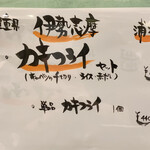 三重県 伊勢志摩
カキフライ セット
(キャベツ千切り・ライス・赤だし)
・単品 カキフライ 1個
浦
¥44